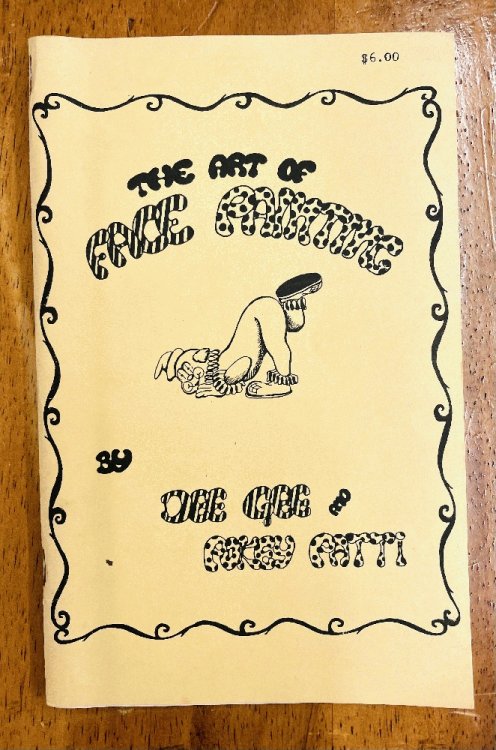 $6.00
THE ART OF
FACE PAINTING
BY
DEE GEE &
POKEY PATTI